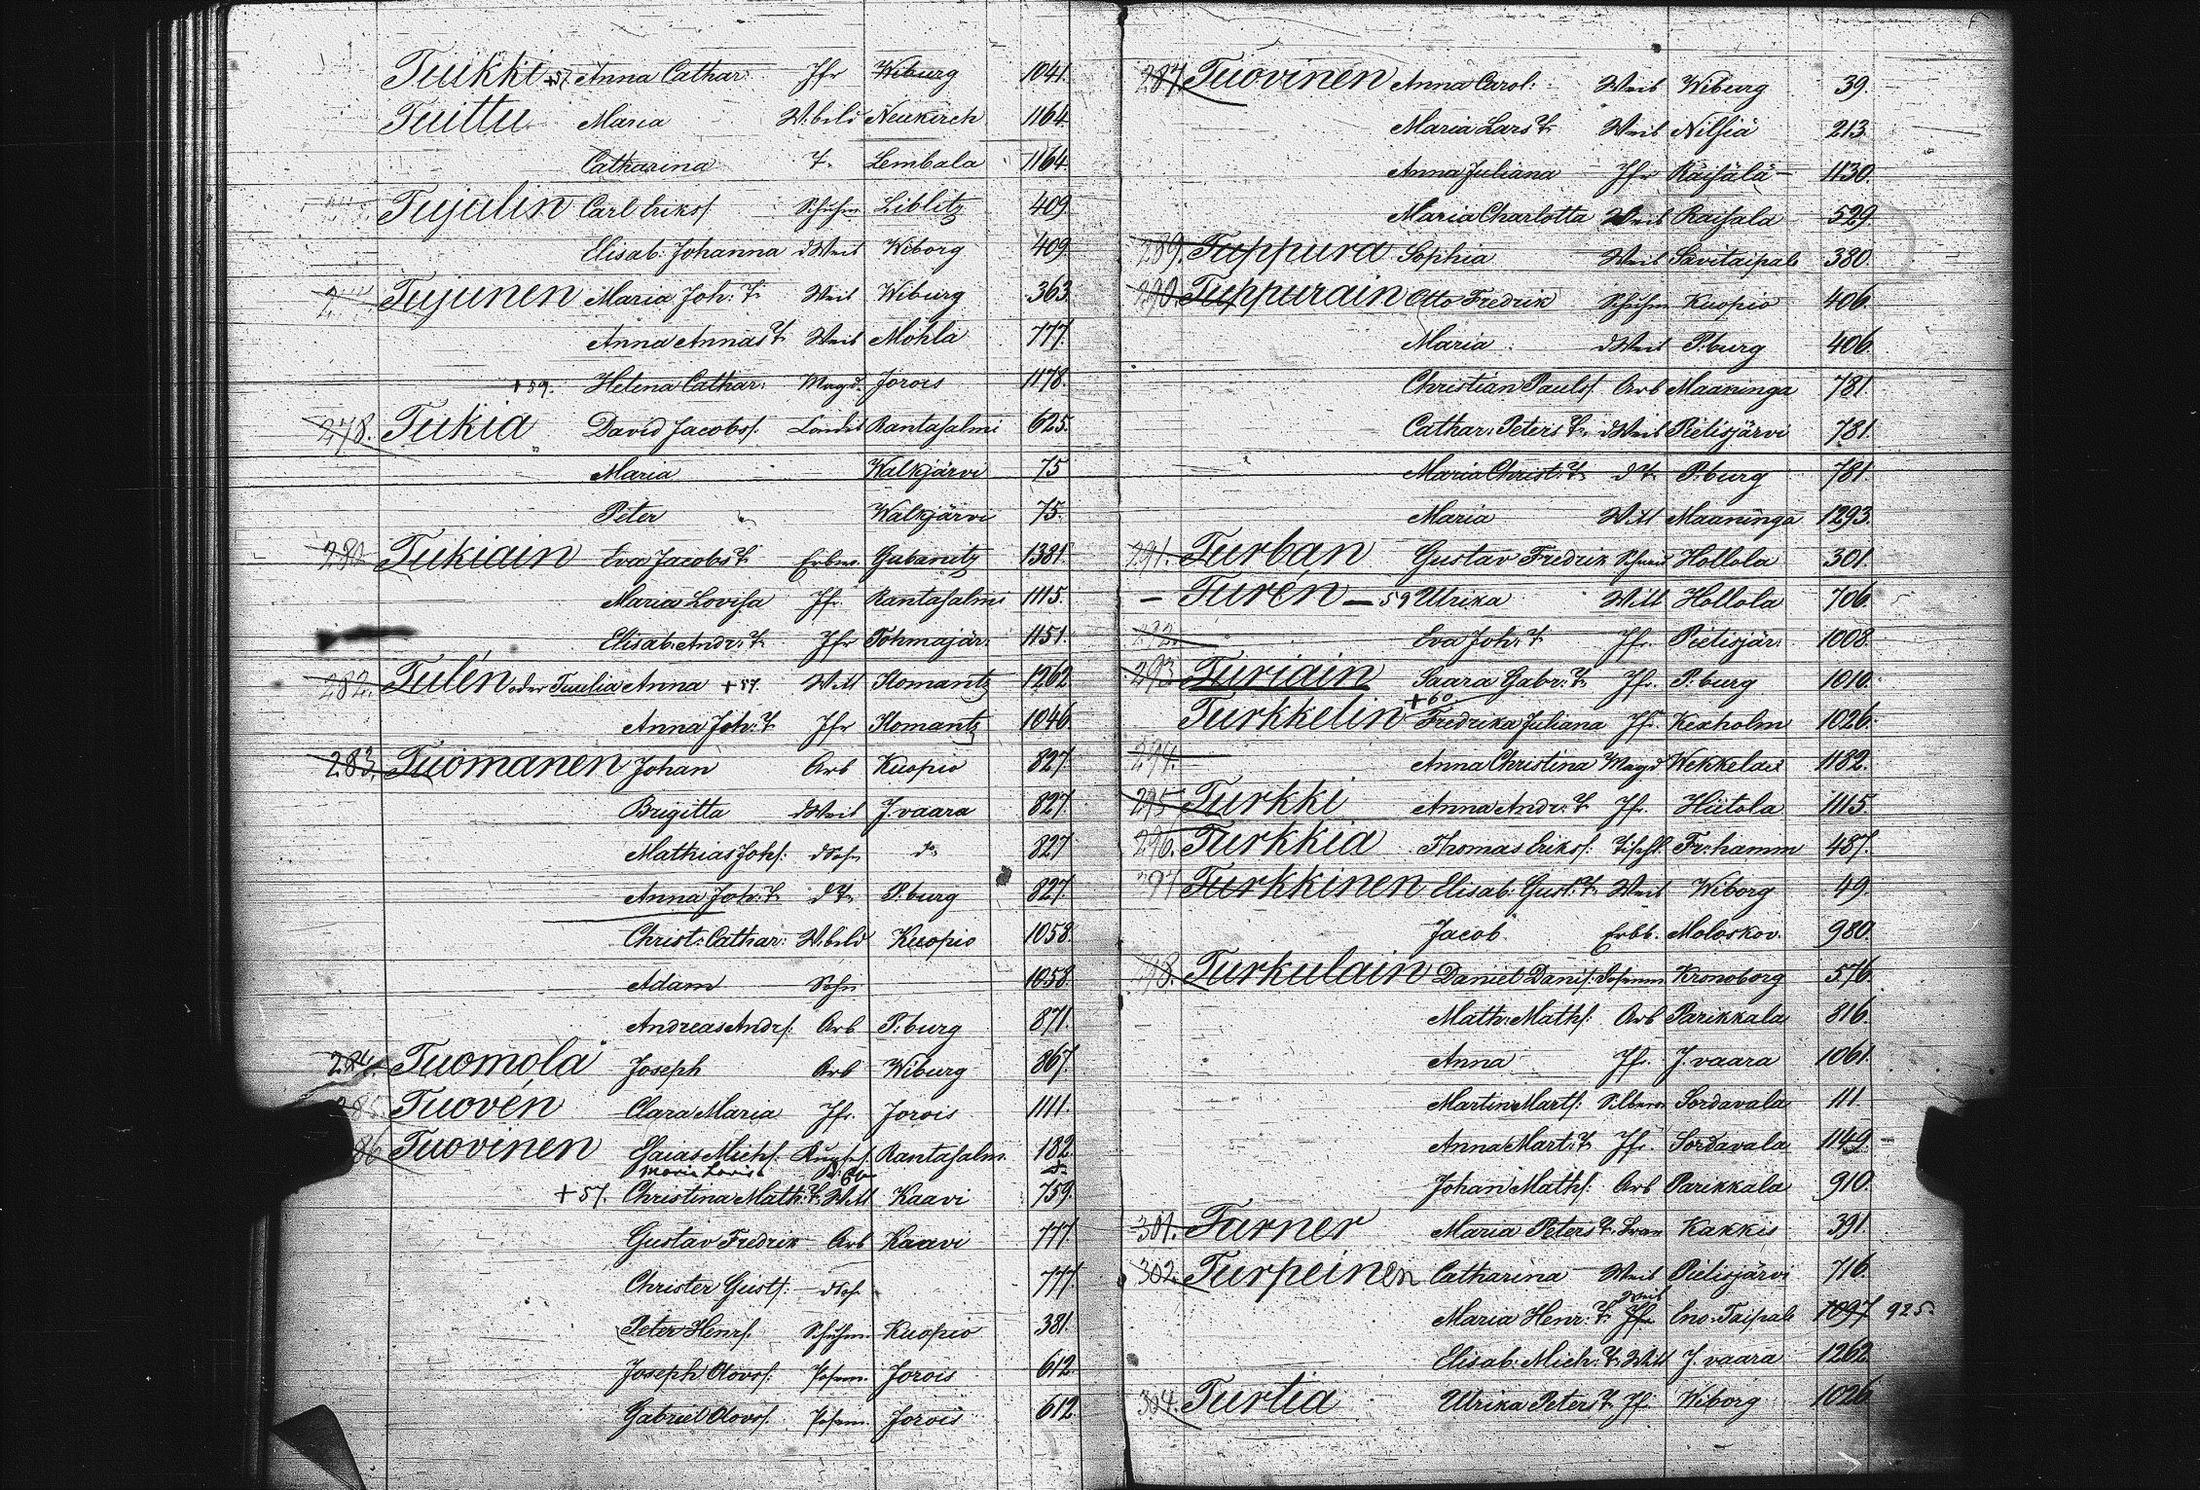 Tuikki +57 Anna Cathar: Jfr Wiburg 1041.
Tuittu Maria W.beld Neukirch 1164.
Catharina T. Lembala 1164.
Tujalin Carl Eriks/ Schuhm Liblitz 409.
Elisab: Johanna dWeib Wiborg 409.
Tujunen Maria Joh: T. Weib Wiburg 363.
Anna Annas T. Weib Mohla 777.
+ 59. Helena Cathar: Magd. Jorois 1178.
278. Tukia David Jacobs/. Rantasalmi 625.
Maria Walkjärvi 75
Peter Walkjärvi 75.
280 Tukiain Eva Jacobs T. Erbm. Gubanitz 1381.
Maria Lovisa Jfr. Rantasalmi 1115.
Elisab: Andr: T. Jfr Tohmajär: 1151.
282. Tulén oder Tuulia Anna + 57. Witt Ilomantz 1262.
Anna Joh: T. Jfr Ilomantz 1046.
283. Tuomanen Johan Arb Kuopio 827.
Brigitta dWeib J.vaara 827.
Mathias Johs/: dSohn d. 827
Anna Joh: T. d T. P.burg 827.
Christ: Cathar: W.beld Kuopio 1058.
Adam Sohn 1058.
Andreas Andrs/: Arb P.burg 871.
284. Tuomola Joseph Arb Wiburg 867.
285. Tuovén Clara Maria Jfr. Jorois 1111.
286 Tuovinen Esaias Michs/. Rantasalm. 182.
Maria Lovisa
+ 57. Christina Math: T. Witt Kaavi 759.
Gustav Fredrik Arb Kaavi 777.
Christer Gusts/: dSoh 777.
Peter Henrs/. Schuhm. Kuopio 381.
Joseph Olovs/: Jorois 612.
Gabriel Olovs/. Jorois 612.
287. Tuovinen Anna Carol: Weib Wiburg 39.
Maria Lars T. Weib Nilsiä 213.
Anna Juliana Jfr Räisälä 1130.
Maria Charlotta Weib Raisala 529.
289. Tuppura Sophia Weib Savitaipale 380.
290. Tuppurain Otto Fredrik Schuhm Kuopio 406.
Maria dWeib P.burg 406.
Christian Pauls/. Arb Maaninga 781.
Cathar: Peters T. dWeib Pielisjärvi 781.
Maria Christ: T. d T. P.burg 781.
Maria Witt Maaninga 1293.
291. Turban Gustav Fredrik Hollola 301.
— Turén — 59 Ulrika Witt Hollola 706.
292. Eva Joh: T. Jfr. Pielisjär: 1008.
293. Turiain Saara Gabr: T. Jfr. P.burg 1010.
Turkkelin + 60 Fredrika Juliana Jfr. Kexholm 1026.
294. Anna Christina Magd Wekkelax 1182.
295. Turkki Anna Andr: T. Jfr. Hiitola 1115.
296. Turkkia Thomas Eriks/. Tischl. Fr:hamm 487.
297 Turkkinen Elisab: Gust: T. Weib Wiborg 49.
Jacob Erbb. Moloskov. 980.
298. Turkulain Daniel Danis/: Kronoborg 576.
Math: Maths/: Arb Parikkala 816.
Anna Jfr. J.vaara 1061.
Martin Marts/: Sordavala 111.
Anna Mart: T. Jfr. Sordavala 1149.
Johan Maths/. Arb Parikkala 910.
301. Turner Maria Peters T. Kakkis 391.
302. Turpeinen Catharina Weib Pielisjärvi 716.
dWeib
Maria Henr: T. Jfr. Eno-Taipale 1097 925.
Elisab: Mich: T. Witt J.vaara 1262.
304. Turtia Ulrika Peters T. Jf. Wiborg 1026.